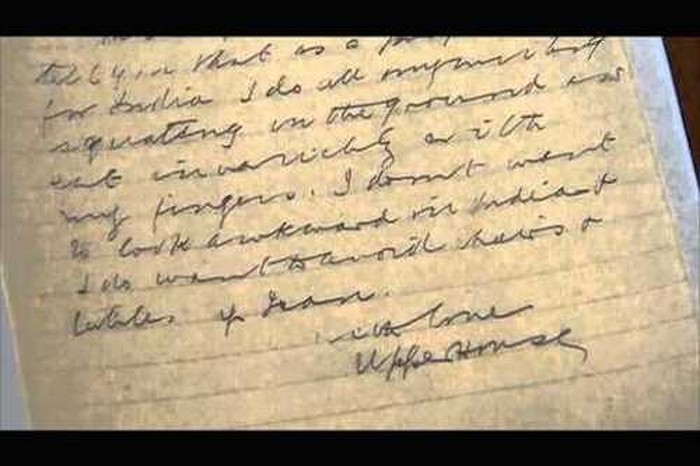 tell you that as a
for India I do all my writing
squatting on the ground and
eat invariably with
my fingers. I don't want
to look awkward in India &
I do want to avoid chairs &
tables if I can.
with love
Upper House